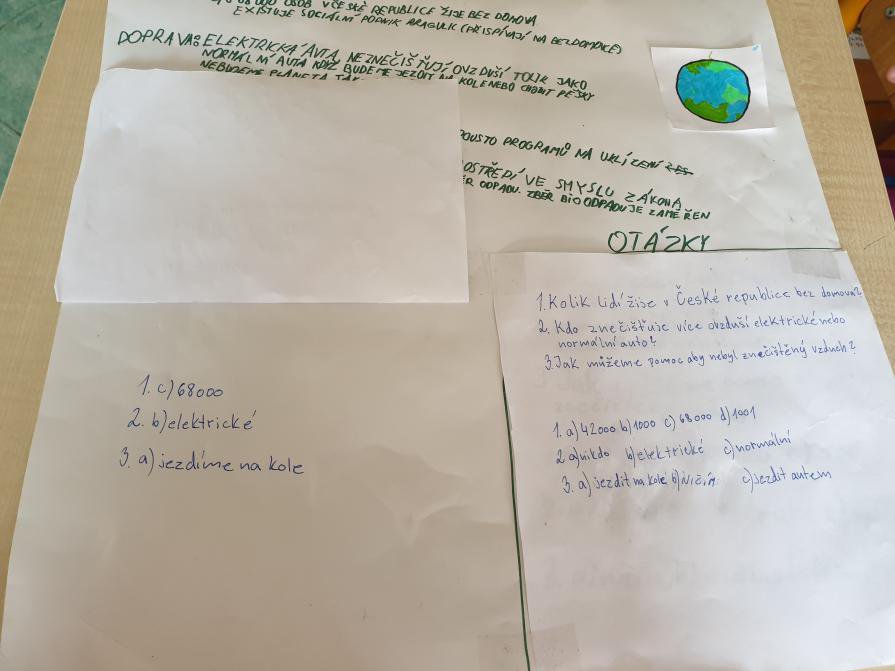 68 000 OSOB V ČESKÉ REPUBLICE ŽIJE BEZ DOMOVA
EXISTUJE SOCIÁLNÍ PODNIK ARAGULIK (PŘISPÍVAJÍ NA BEZDOMOVCE)
DOPRAVA: ELEKTRICKÁ AUTA, NEZNEČIŠŤUJÍ OVZDUŠÍ TOLIK JAKO
NORMÁLNÍ AUTA KDYŽ BUDEME JEZDIT NA KOLE NEBO CHODIT PĚŠKY
NEBUDEME PLANETA TAK
POUSTO PROGRAMŮ NA UKLÍZENÍ
OSTŘEDÍ VE SMYSLU ZÁKONA
ĚR ODPADU. ZBĚR BIOODPADU JE ZAMĚŘEN
OTÁZKY
1. Kolik lidí žije v České republice bez domova?
2. Kdo znečišťuje více ovzduší elektrické nebo
normální auto?
3. Jak můžeme pomoc aby nebyl znečištěný vzduch?
1. a) 42000 b) 1000 c) 68000 d) 1001
2 a) nikdo b) elektrické c) normální
3. a) jezdit na kole b) c) jezdit autem
1. c) 68000
2. b) elektrické
3. a) jezdíme na kole